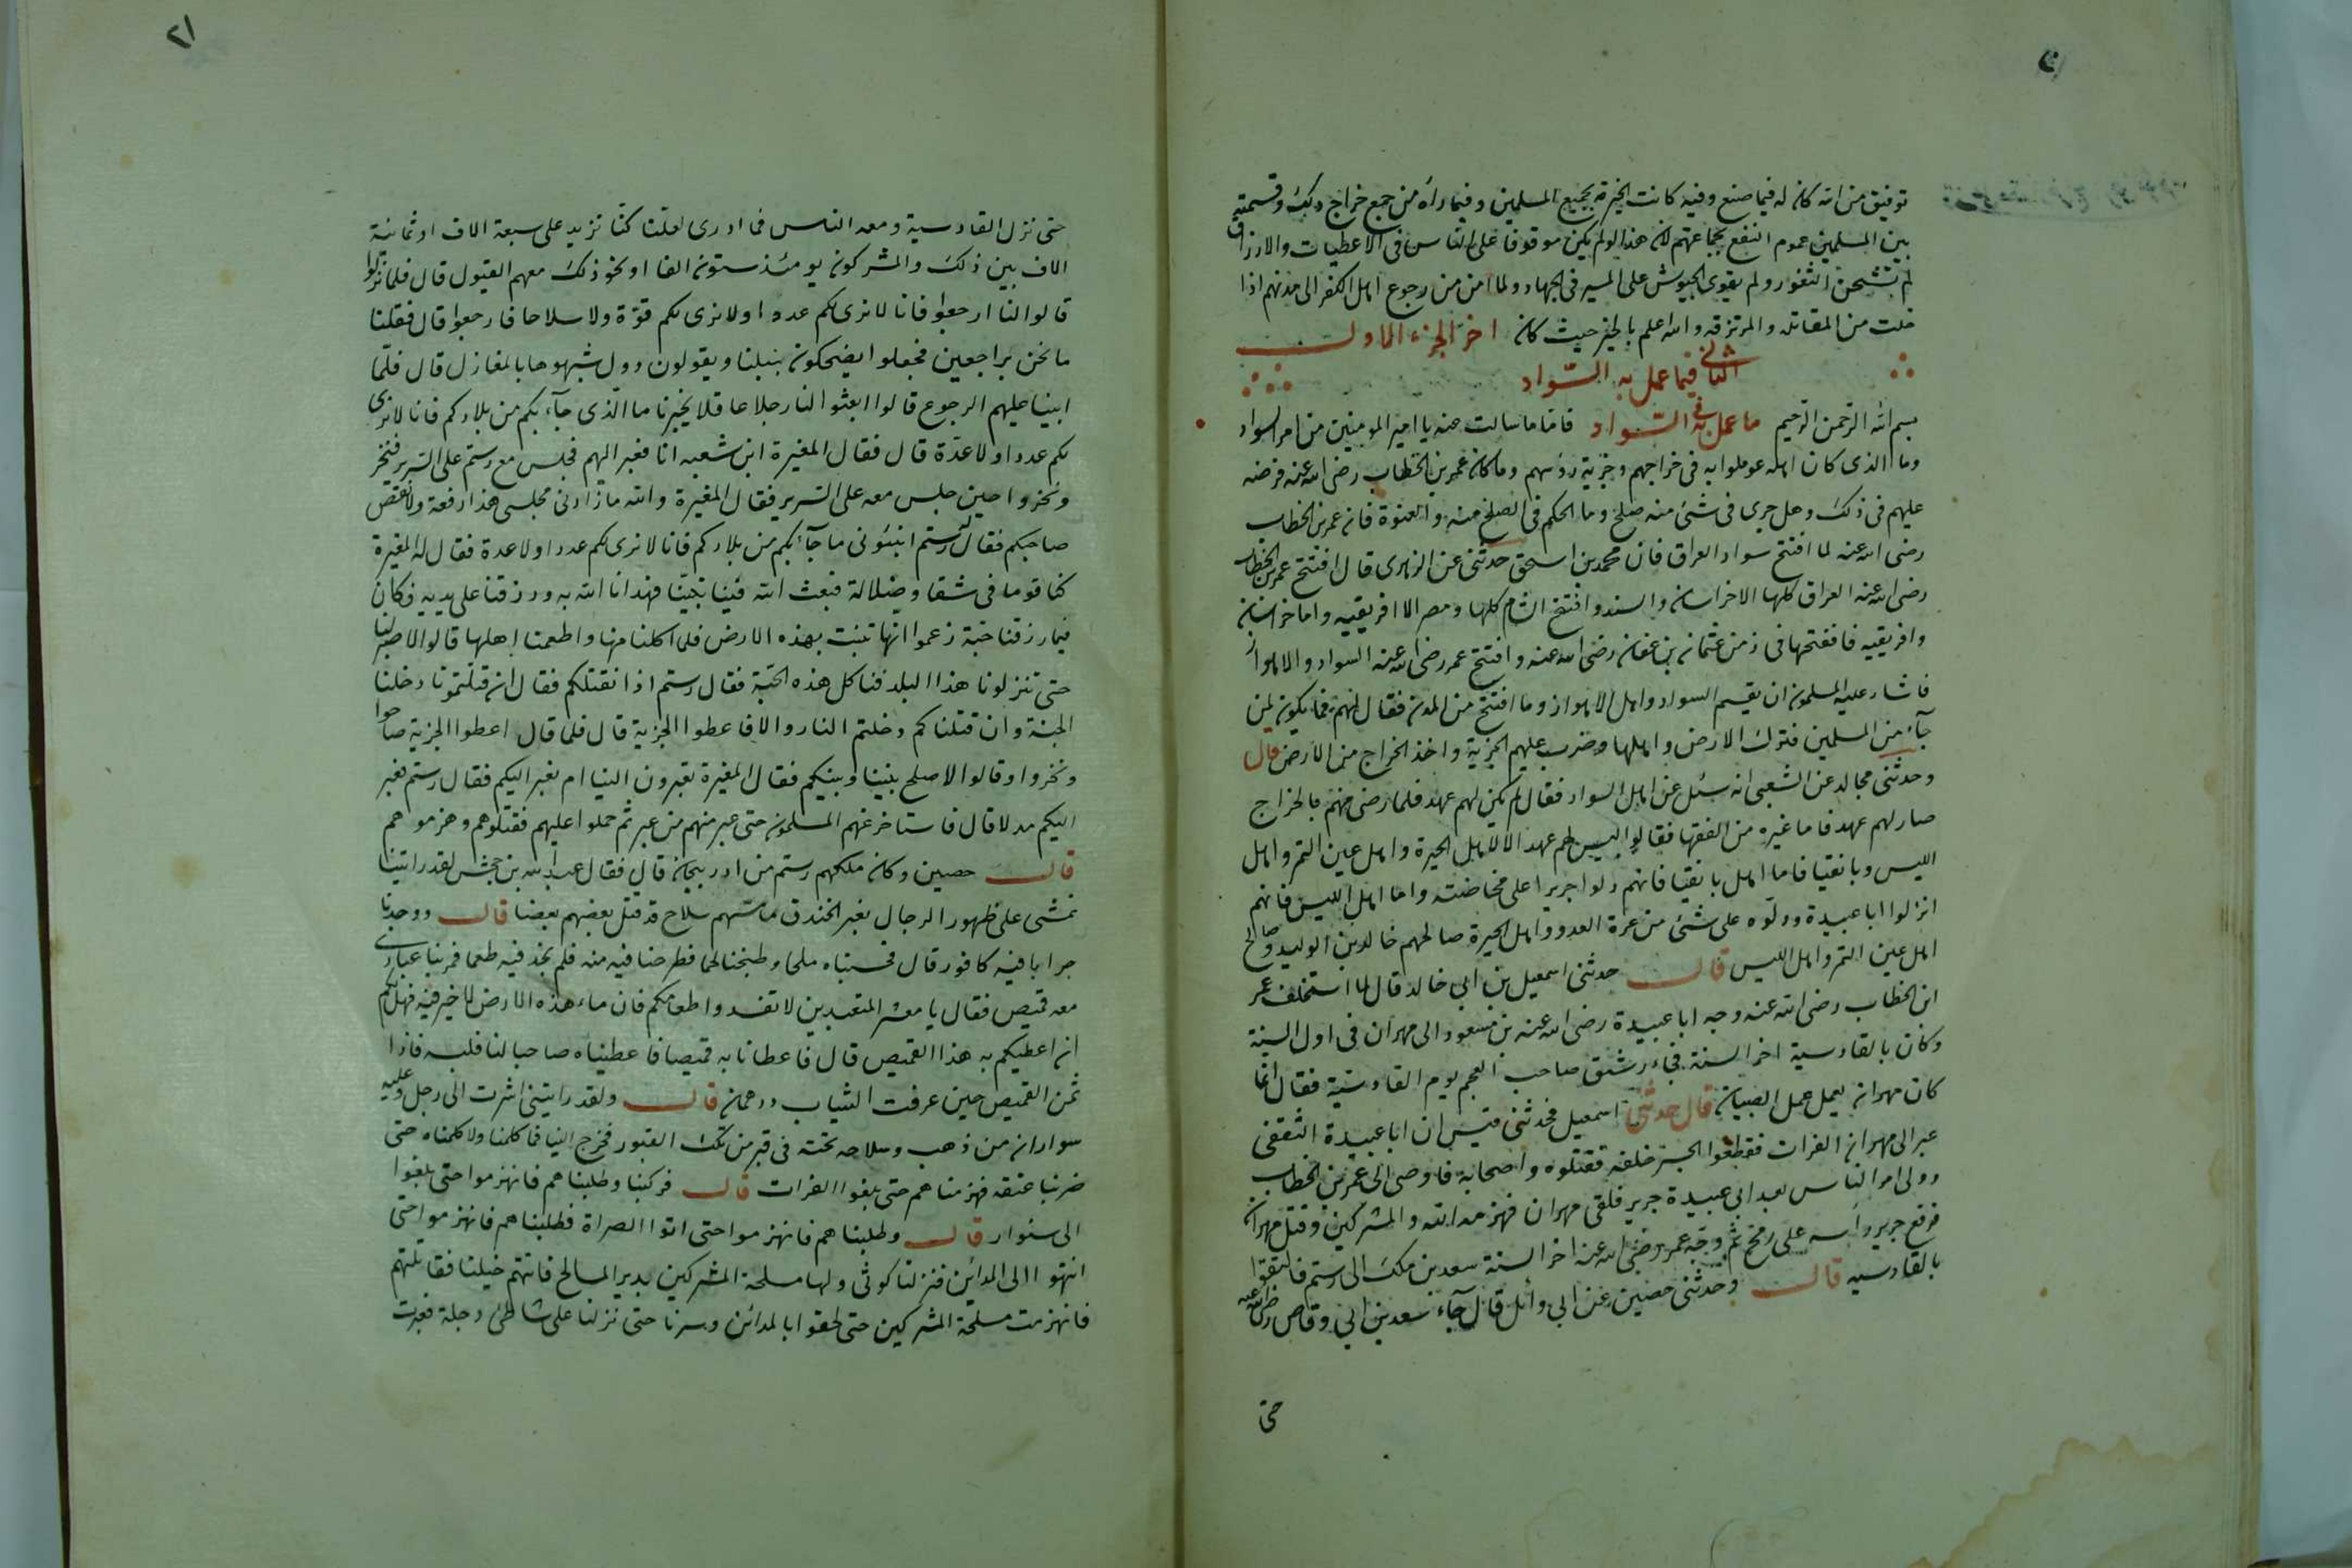 توفيق من الله كان له فيما صنع وفيه كانت الخيرة لجميع المسلمين وفيما رآه من جمع خراج ذلك وقسمته
بين المسلمين عموم النفع بجماعتهم لان هذا لو لم يكن موقوفا على الناس فى الاعطيات والارزاق
لم تشحن الثغور ولم يقوى الجيوش على المسير فى الجهاد ولما امن من رجوع اهل الكفر الى مدنهم اذا
خلت من المقاتله والمرتزقه والله اعلم بالخير حيث كان اخر الجزء الاول
الثانى فيما عمل به السواد
بسم الله الرحمن الرحيم ما عمل به فى السواد فاما ما سالت عنه يا امير المومنين من امر السواد
وما الذى كان اهله عوملوا به فى خراجهم وجزية رؤسهم وما كان عمر بن الخطاب رضى الله عنه فرضه
عليهم فى ذلك وهل جرى فى شئ منه صلح وما الحكم فى الصلح منه والعنوة فان عمر بن الخطاب
رضى الله عنه لما افتتح سواد العراق فان محمد بن اسحق حدثنى عن الزهرى قال افتتح عمر بن الخطاب
رضى الله عنه العراق كلها الا خراسان والسند وافتتح الشام كلها ومصر الا افريقيه واما خراسان
وافريقيه فافتتحها فى زمن عثمان بن عفان رضى الله عنه وافتتح عمر رضى الله عنه السواد والاهواز
فاشار عليه المسلمون ان يقسم السواد واهل الاهواز وما افتتح من المدن فقال لهم فما يكون لمن
جآء من المسلمين فترك الارض واهلها وضرب عليهم الجزية واخذ الخراج من الارض قال
وحدثنى مجالد عن الشعبى انه سئل عن اهل السواد فقال لم يكن لهم عهد فلما رضى منهم بالخراج
صار لهم عهد فاما غيره من الفقها فقالوا ليس لهم عهد الا لاهل الحيرة واهل عين التمر واهل
الليس وبانقيا فاما اهل بانقيا فانهم دلوا جريرا على مخاضته واما اهل الليس فانهم
انزلوا ابا عبيدة ودلوه على شئ من عرة العدو واهل الحيرة صالحهم خالد بن الوليد وصالح
اهل عين التمر واهل الليس قال حدثنى اسمعيل بن ابى خالد قال لما استخلف عمر
ابن الخطاب رضى الله عنه وجه ابا عبيدة رضى الله عنه بن مسعود الى مهران فى اول السنة
وكان بالقادسية اخر السنة فجاء رشتق صاحب العجم يوم القادسية فقال انما
كان مهران يعمل عمل الصبيان قال حدثنى اسمعيل فحدثنى قيس ان ابا عبيدة الثقفى
عبر الى مهران الفرات فقطعوا الجسر خلفه فقتلوه واصحابه فاوصى الى عمر بن الخطاب
وولى امر الناس بعد ابى عبيدة جرير فلقى مهران فهزمه الله والمشركين وقتل مهران
فرفع جرير راسه على رمح ثم وجه عمر رضى الله عنه اخر السنة سعد بن ملك الى رستم فالتقوا
بالقادسيه قال وحدثنى حصين عن ابى وائل قال جآء سعد بن ابى وقاص رضى الله عنه
حتى
٢١
حتى نزل القادسية ومعه الناس فما ادرى لعلنا كنا نزيد على سبعة الاف او ثمانية
الاف بين ذلك والمشركون يومئذ ستون الفا او نحو ذلك معهم الفيول قال فلما نزلوا
قالوا لنا ارجعوا فانا لا نرى لكم عددا ولا نرى لكم قوة ولا سلاحا فارجعوا قال فقلنا
ما نحن براجعين فجعلوا يضحكون بنبلنا ويقولون دول شبهوها بالمغازل قال فلما
ابينا عليهم الرجوع قالوا ابعثوا لنا رجلا عاقلا يخبرنا ما الذى جآء بكم من بلادكم فانا لا نرى
لكم عددا ولا عدة قال فقال المغيرة ابن شعبه انا فعبر اليهم فجلس مع رستم على السرير فنخر
ونخروا حين جلس معه على السرير فقال المغيرة والله ما زادنى مجلسى هذا رفعة ولا نقص
صاحبكم فقال له رستم انبئونى ما جآء بكم من بلادكم فانا لا نرى لكم عددا ولا عدة فقال له المغيرة
كنا قوما فى شقا وضلالة فبعث الله فينا نبيّنا فهدانا الله به ورزقنا على يديه فكان
فيما رزقنا حبة زعموا انها تنبت بهذه الارض فلما اكلنا منها واطعمنا اهلها قالوا لا صبر لنا
حتى تنزلونا هذا البلد فناكل هذه الحبة فقال رستم اذا نقتلكم فقال ان قتلتمونا دخلنا
الجنة وان قتلناكم دخلتم النار والا فاعطوا الجزية قال فلما قال اعطوا الجزية صاحوا
ونخروا وقالوا لا صلح بيننا وبينكم فقال المغيرة تعبرون الينا ام نعبر اليكم فقال رستم نعبر
اليكم مدلا قال فاستاخر عنهم المسلمون حتى عبر منهم من عبر ثم حملوا عليهم فقتلوهم وهزموهم
قال حصين وكان ملكهم رستم من ادربيجان قال فقال عبد الله بن جحش لقد راتينا
نمشى على ظهور الرجال نعبر الخندق ما مسهم سلاح قد قتل بعضهم بعضا قال ووجدنا
جرابا فيه كافور قال فحسبناه ملحا وطبخنا لحما فطرحنا فيه منه فلم نجد فيه طعما فمر بنا عبادى
معه قميص فقال يا معشر المتعبدين لا تفسدوا طعامكم فان ملح هذه الارض لا خير فيه فهل لكم
ان اعطيكم به هذا القميص قال فاعطانا به قميصا فاعطيناه صاحبا لنا فلبسه فاذا
ثمن القميص حين عرفت الثياب درهمان قال ولقد رايتنى اشرت الى رجل وعليه
سواران من ذهب وسلاحه تحته فى قبر من تلك القبور فخرج الينا فما كلمنا ولا كلمناه حتى
ضربنا عنقه فهزمناهم حتى بلغوا الفرات قال فركبنا وطلبناهم فانهزموا حتى بلغوا
الى سنوار قال وطلبناهم فانهزموا حتى اتوا الصراة فطلبناهم فانهزموا حتى
انتهوا الى المدائن فنزلنا كوثى ولها مسلحة المشركين بدير المسالح فاتتهم خيلنا فقاتلتهم
فانهزمت مسلحة المشركين حتى لحقوا بالمدائن وسرنا حتى نزلنا على شاطئ دجلة فعبرت